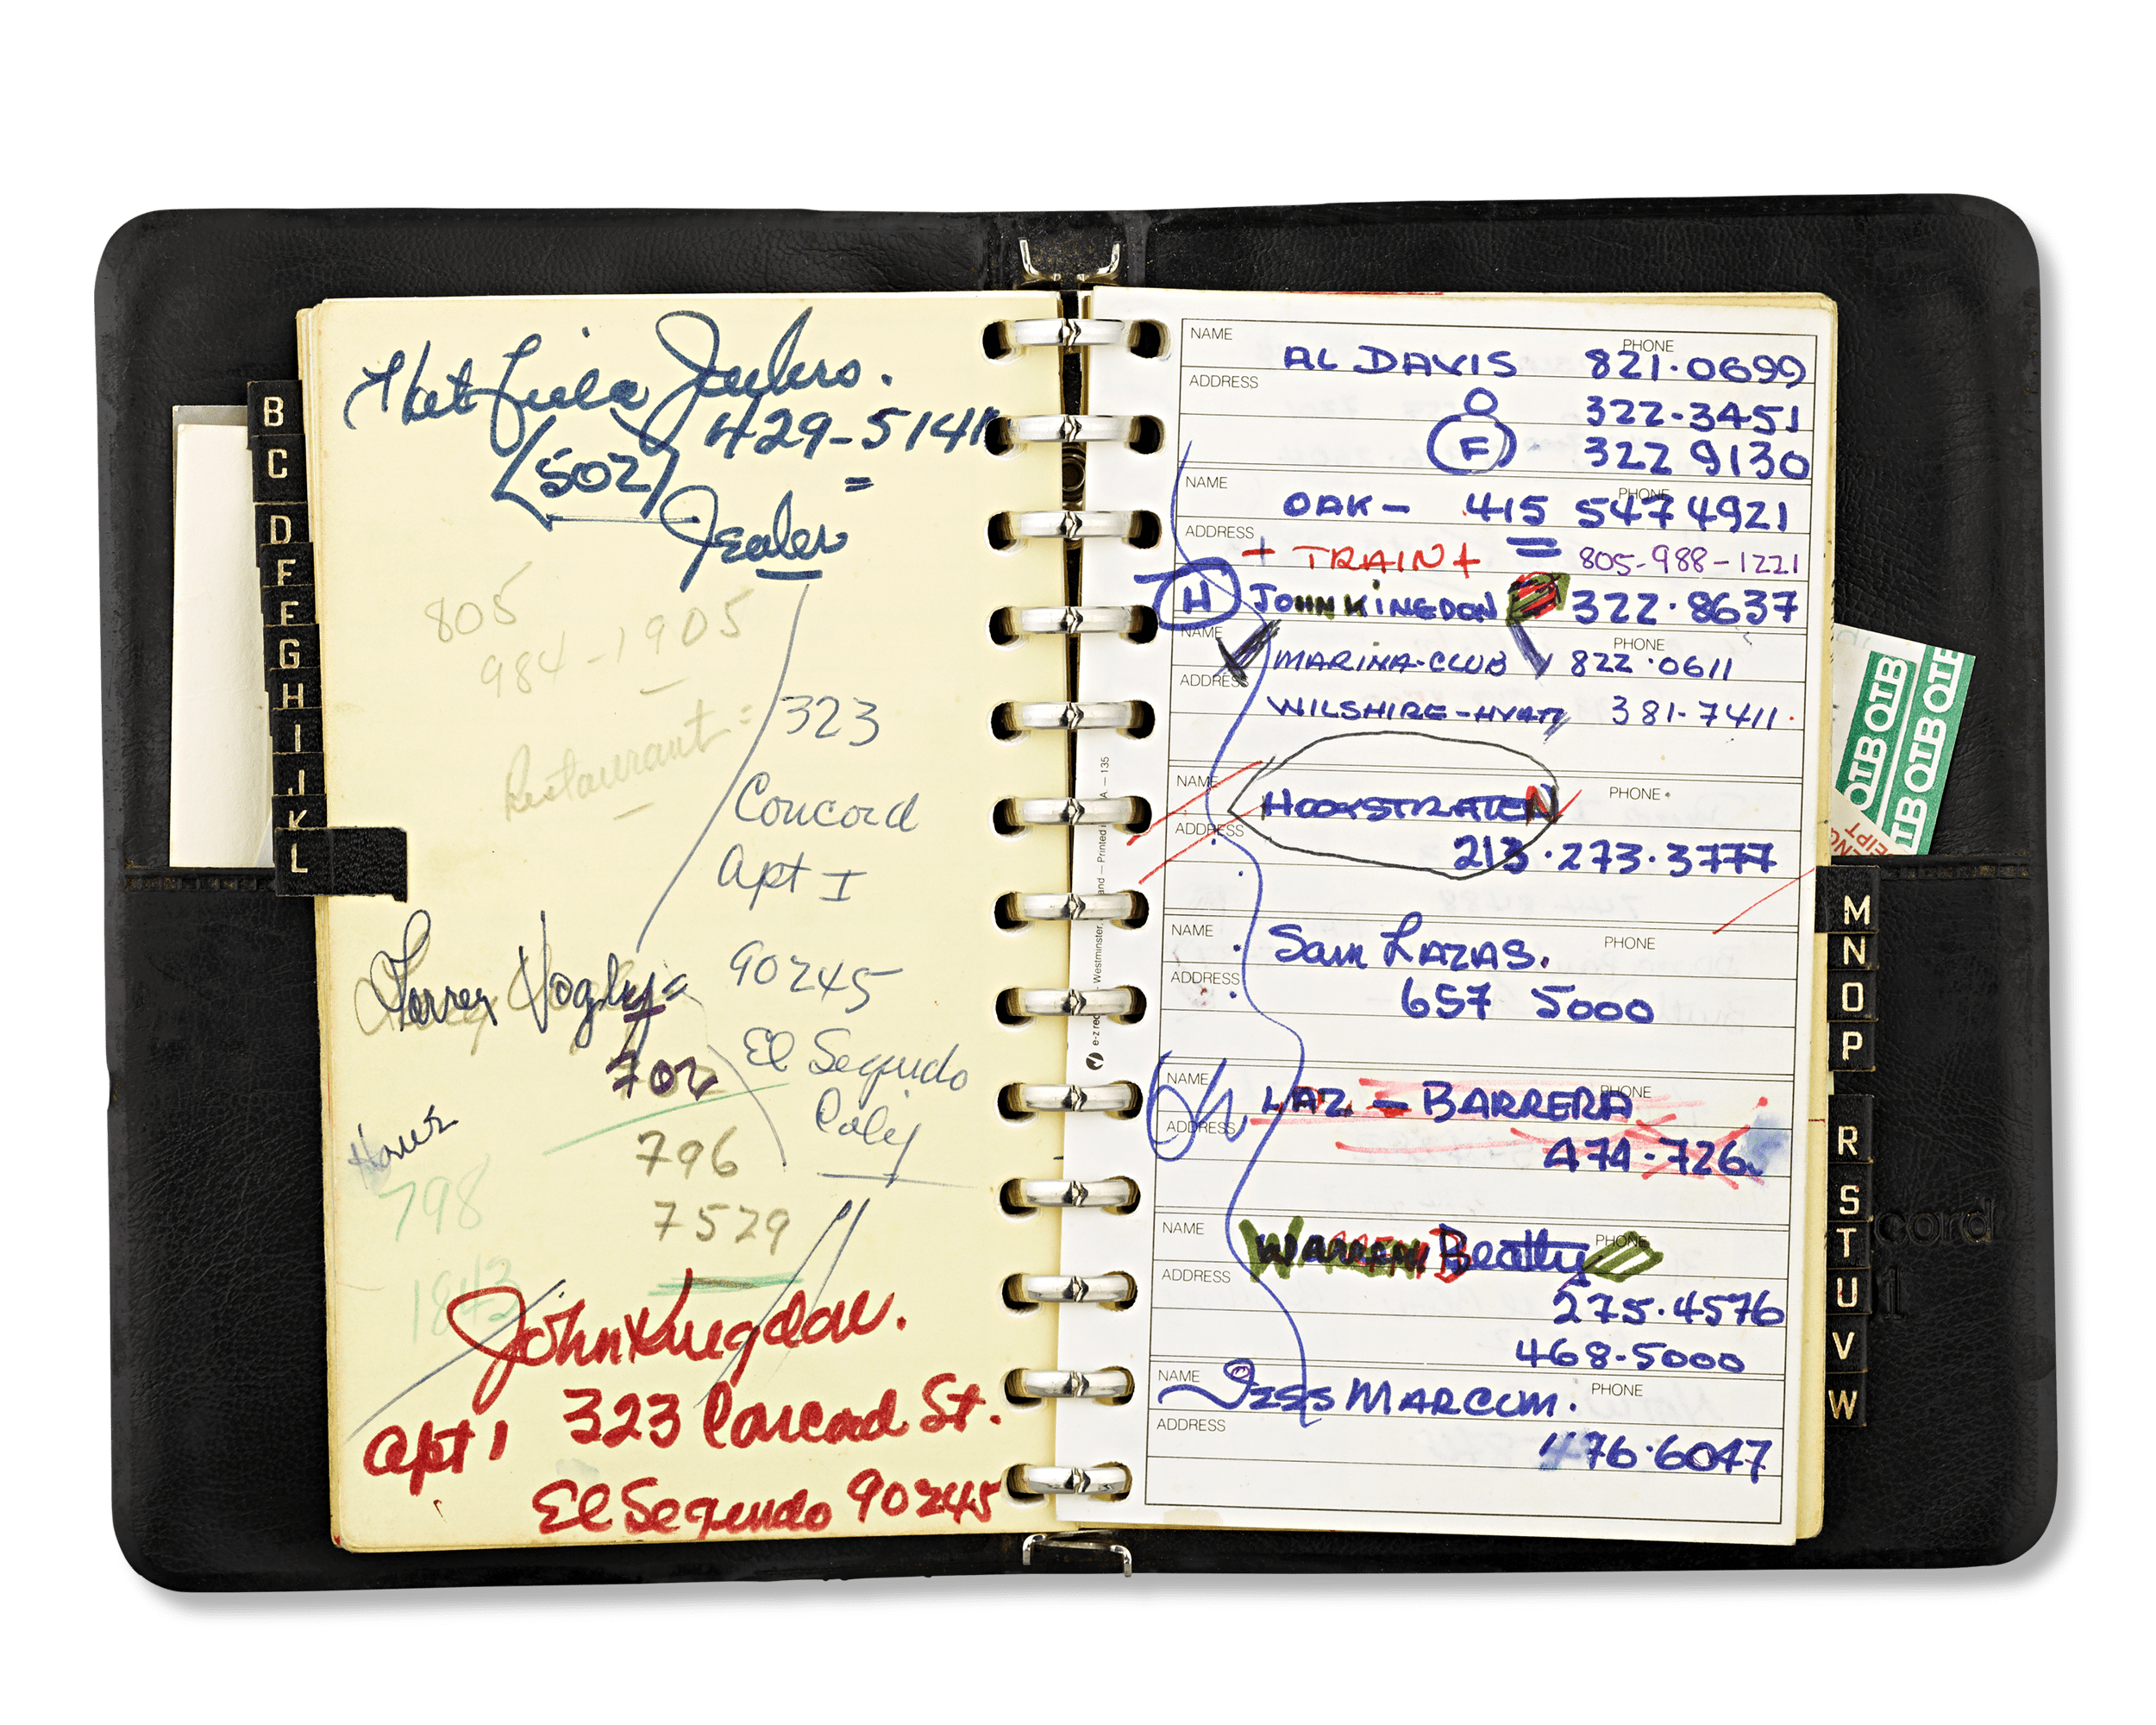 B
C
D
F
F
G
H
I
J
K
L
429-5141
(502)
=
Jealer
805
984-1905
Restaurant =
323
Concord
Apt I
90245
El Segundo
Calif
702
796
7529
798
1843
John Kingdon.
323 Concord St.
Apt 1
El Segundo 90245
NAME PHONE
AL DAVIS 821.0699
ADDRESS
O 322-3451
F - 322 9130
NAME PHONE
OAK - 415 547 4921
ADDRESS
+ TRAIN + = 805-988-1221
H JOHN KINGDON 322.8637
NAME PHONE
MARINA-CLUB 822.0611
ADDRESS
WILSHIRE-HYATT 381-7411.
NAME PHONE
HOOKSTRATEN
ADDRESS
213.273.3777
NAME PHONE
Sam LAZAS.
ADDRESS
657 5000
NAME PHONE
LAZ - BARRERA
ADDRESS
474-726
NAME PHONE
WARREN Beatty
ADDRESS
275.4576
468-5000
NAME PHONE
JESS MARCUM.
ADDRESS
476.6047
OTB OTB
OTB OTB
M
N
O
P
R
S
T
U
V
W
cord
1